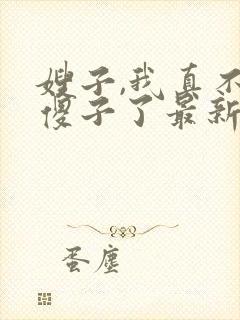 嫂子,我真不
傻子了最新
蛋尘